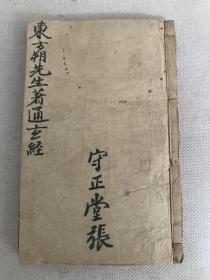 東方朔先生著通玄経
守正堂張